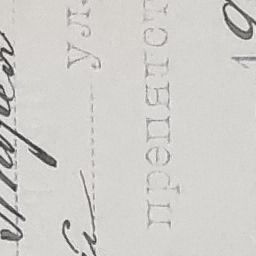 й ул.
препятст
19